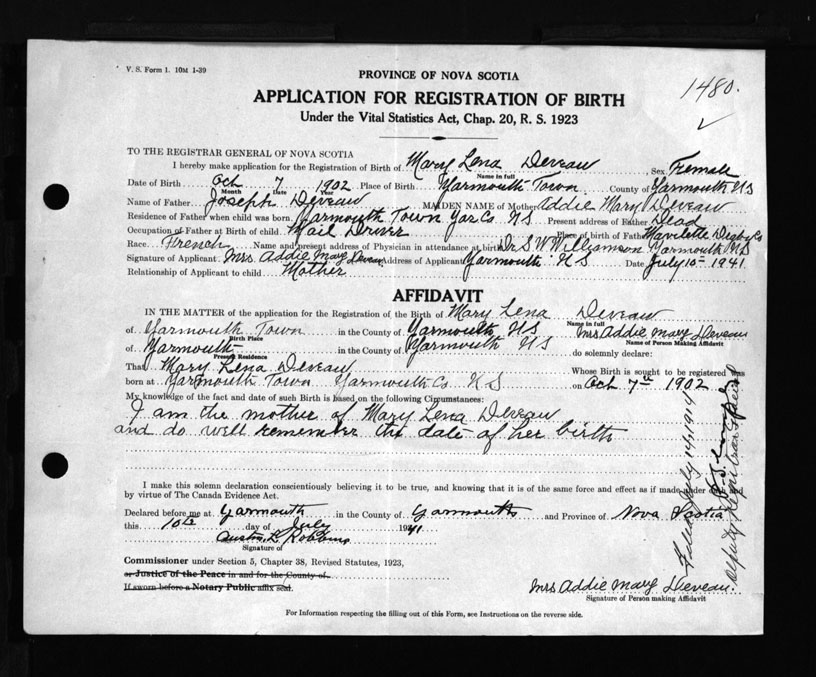 V. S. Form 1. 10M 1-39
PROVINCE OF NOVA SCOTIA
1480.
APPLICATION FOR REGISTRATION OF BIRTH
Under the Vital Statistics Act, Chap. 20, R. S. 1923
TO THE REGISTRAR GENERAL OF NOVA SCOTIA
I hereby make application for the Registration of Birth of Mary Lena Deveau Sex Female
Name in full
Date of Birth Oct 7 1902 Place of Birth Yarmouth Town County of Yarmouth NS
Month Date Year
Name of Father Joseph Deveau MAIDEN NAME of Mother Addie Mary Deveau
Residence of Father when child was born Yarmouth Town Yar Co. NS Present address of Father Dead
Occupation of Father at Birth of child Mail Driver Place of birth of Father Mavilette Digby Co
Race French Name and present address of Physician in attendance at birth Dr S W Williamson Yarmouth NS
Signature of Applicant Mrs Addie Mary Deveau Address of Applicant Yarmouth NS Date July 10 - 1941
Relationship of Applicant to child Mother
AFFIDAVIT
IN THE MATTER of the application for the Registration of the Birth of Mary Lena Deveau
Name in full
of Yarmouth Town in the County of Yarmouth NS Mrs Addie Mary Deveau
Birth Place Name of Person Making Affidavit
of Yarmouth in the County of Yarmouth NS do solemnly declare:
Present Residence
That Mary Lena Deveau Whose Birth is sought to be registered was
born at Yarmouth Town Yarmouth Co. NS on Oct 7th 1902
My knowledge of the fact and date of such Birth is based on the following Circumstances:
I am the mother of Mary Lena Deveau
and do well remember the date of her birth
I make this solemn declaration conscientiously believing it to be true, and knowing that it is of the same force and effect as if made under oath and
by virtue of The Canada Evidence Act.
Declared before me at Yarmouth in the County of Yarmouth and Province of Nova Scotia
this 10th day of July 1941
Austin L Robbins
Signature of
Commissioner under Section 5, Chapter 38, Revised Statutes, 1923,
or Justice of the Peace in and for the County of
If sworn before a Notary Public affix seal.
Mrs Addie Mary Deveau.
Signature of Person making Affidavit
For Information respecting the filling out of this Form, see Instructions on the reverse side.
Filed July
Deputy Registrar General